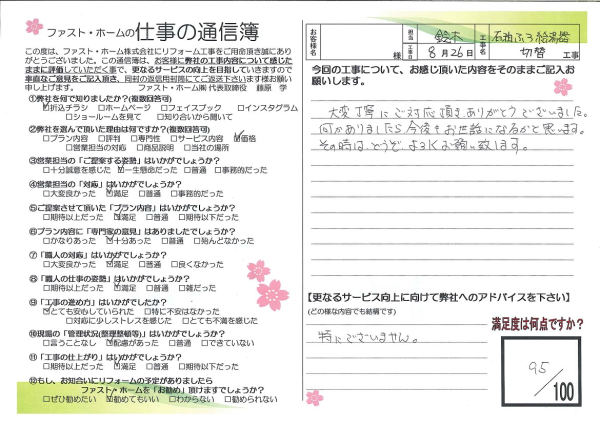 ファスト・ホームの仕事の通信簿
この度は、ファスト・ホーム株式会社にリフォーム工事をご用命頂き誠にありがとうございました。この通信簿は、お客様に弊社の工事内容について感じたままに評価していただく事で、更なるサービスの向上を目指していきますので率直なご意見をご記入頂き、同封の返信用封筒にてご返送下さいます様お願い申し上げます。
ファスト・ホーム㈱ 代表取締役 藤原 学
①弊社を何で知りましたか?(複数回答可)
☑折込チラシ □ホームページ □フェイスブック □インスタグラム
□ショールームを見て □知り合いから聞いて
②弊社を選んで頂いた理由は何ですか?(複数回答可)
□プラン内容 □評判 □専門性 □サービス内容 ☑価格
□営業担当の対応 □商品説明 □当社の場所
③営業担当の「ご提案する姿勢」はいかがでしょうか?
□十分誠意を感じた ☑一生懸命だった □普通 □事務的だった
④営業担当の「対応」はいかがでしょうか?
□大変良かった ☑満足 □普通 □事務的だった
⑤ご提案させて頂いた「プラン内容」はいかがでしょうか?
□期待以上だった ☑満足 □普通 □期待以下だった
⑥プラン内容に「専門家の意見」はありましたでしょうか?
□かなりあった ☑十分あった □普通 □殆んどなかった
⑦「職人の対応」はいかがでしょうか?
□大変良かった ☑満足 □普通 □良くなかった
⑧「職人の仕事の姿勢」はいかがでしょうか?
□期待以上だった ☑満足 □普通 □雑だった
⑨「工事の進め方」はいかがでしたか?
☑とても安心していられた □特に不安はなかった
□対応に少しストレスを感じた □とても不満を感じた
⑩現場の「管理状況(整理整頓等)」はいかがでしょうか?
□言うことなし ☑配慮があった □普通 □できていない
⑪「工事の仕上がり」はいかがでしょうか?
□期待以上だった ☑満足 □普通 □期待以下だった
⑫もし、お知合いにリフォームの予定がありましたら
ファスト・ホームを「お勧め」頂けますでしょうか?
□ぜひ勧めたい ☑勧めてもいい □わからない □勧められない
お客様名 様
担当 鈴木
工事日 8月26日
工事名 石油ふろ給湯器
切替 工事
今回の工事について、お感じ頂いた内容をそのままご記入お願いします。
大変丁寧にご対応頂きありがとうございました。
何かありましたら今後もお世話になるかと思います。
その時は、どうぞよろしくお願い致します。
【更なるサービス向上に向けて弊社へのアドバイスを下さい】
(どの様な内容でも結構です)
特にございません。
満足度は何点ですか?
95/100